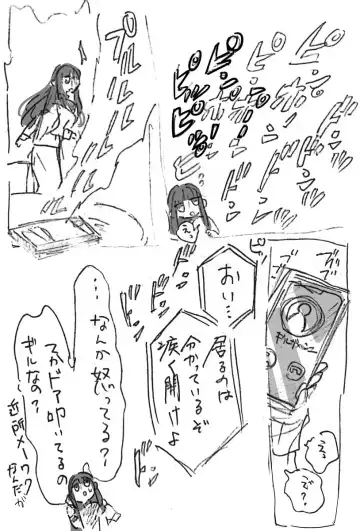 ピンポン
ピンポン
ピンポン
ピンポン
ピンポン
ピンポン!
ドンドン
ドンドン
ドンドン
え…
プルルルルル
ブブブ
ブブ
ギルガメッシュ
おい…
居るのは
分かっているぞ
疾く開けよ
…なんか怒ってる?
てかドア叩いてるの
ギルなの?
近所メーワク
なんだが